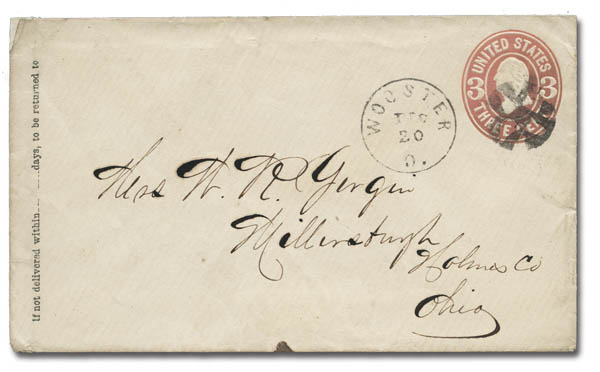 UNITED STATES
3 3
THREE
WOOSTER
DEC
20
O.
Mrs W. R.
Millersburgh
Holmes Co
Ohio
If not delivered within days, to be returned to